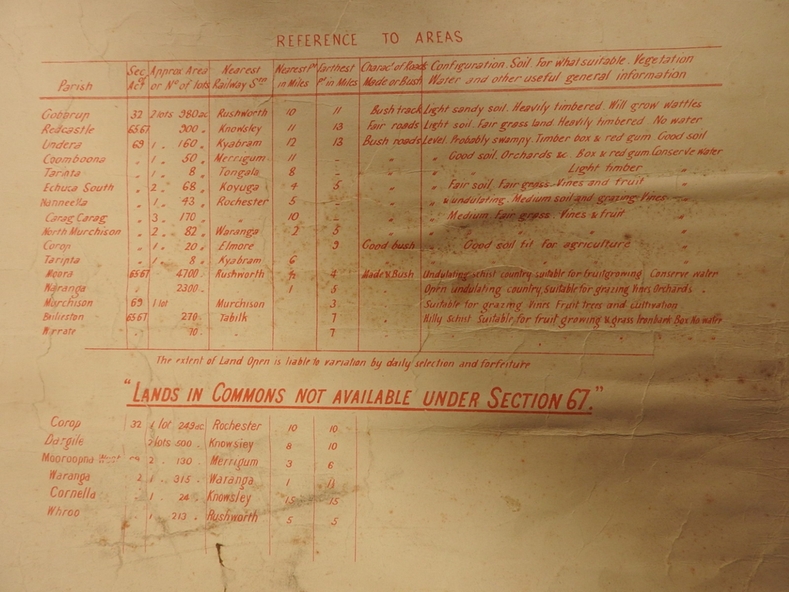 REFERENCE TO AREAS
Parish Sec of Act Approx Area or No of lots Nearest Railway Stn Nearest Pt in Miles Farthest Pt in Miles Charac. of Roads Made or Bush Configuration. Soil For what suitable. Vegetation Water and other useful general information
Gobarup 32 2 lots 980 ac Rushworth 10 11 Bush track Light sandy soil. Heavily timbered. Will grow wattles
Redcastle 65 67 900 „ Knowsley 11 13 Fair roads Light soil. Fair grass land. Heavily timbered. No water
Undera 69 1 „ 160 „ Kyabram 12 13 Bush roads Level. Probably swampy. Timber box & red gum. Good soil
Coomboona „ 1 „ 50 „ Merrigum 11 - „ „ Good soil. Orchards &c. Box & red gum. Conserve water
Taripta „ 1 „ 8 „ Tongala 8 - „ „ Light timber „
Echuca South „ 2 „ 68 „ Koyuga 4 5 „ „ Fair soil. Fair grass. Vines and fruit „
Nanneella „ 1 „ 43 „ Rochester 5 - „ „ & undulating. Medium soil and grazing Vines „
Carag Carag „ 3 „ 170 „ „ 10 - „ „ Medium Fair grass. Vines & fruit „
North Murchison „ 2 „ 82 „ Waranga 2 5 „ „ „ „
Corop „ 1 „ 20 „ Elmore 9 Good bush „ Good soil fit for agriculture „
Taripta „ 1 „ 8 „ Kyabram 6
Moora 65 67 4700 „ Rushworth 4 Made & Bush Undulating schist country suitable for fruitgrowing Conserve water
Waranga „ 2300 „ „ 1 5 „ Open undulating country. Suitable for grazing Vines, Orchards „
Murchison 69 1 lot Murchison 3 „ Suitable for grazing Vines Fruit trees and cultivation
Bailieston 65 67 270 „ Tabilk 7 „ Hilly Schist Suitable for fruit growing & grass Ironbark Box No water
Wirrate „ 70 „ „ 7
The extent of Land Open is liable to variation by daily selection and forfeiture
"LANDS IN COMMONS NOT AVAILABLE UNDER SECTION 67."
Corop 32 1 lot 249 ac Rochester 10 10
Dargile 2 lots 500 „ Knowsley 8 10
Mooroopna West 69 2 „ 130 „ Merrigum 3 6
Waranga 2 „ 315 „ Waranga 1 11
Cornella „ 1 „ 24 „ Knowsley 15 15
Whroo „ 1 „ 213 „ Rushworth 5 5